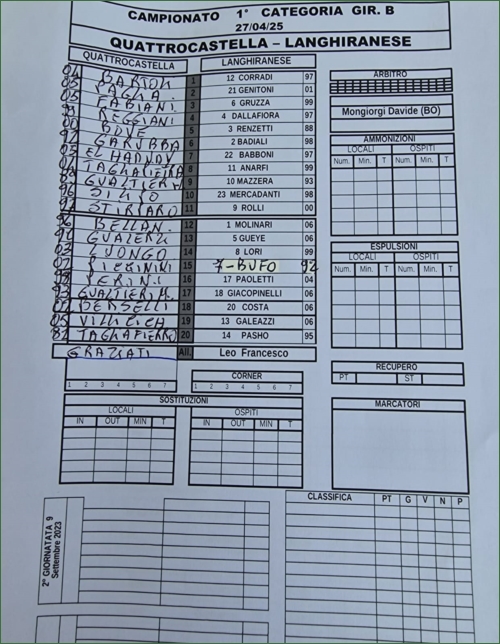 CAMPIONATO 1° CATEGORIA GIR. B
27/04/25
QUATTROCASTELLA – LANGHIRANESE
QUATTROCASTELLA LANGHIRANESE
BARTOLI 1 12 CORRADI 97
PAGLIA 2 21 GENITONI 01
FABIANI 3 6 GRUZZA 99
REGGIANI 4 4 DALLAFIORA 97
BOVE 5 3 RENZETTI 88
GARUBBA 6 2 BADIALI 98
EL HADDOV 7 22 BABBONI 97
TAGLIAPIETRA 8 11 ANARFI 99
GUALTIERI 9 10 MAZZERA 93
10 23 MERCADANTI 98
11 9 ROLLI 00
96 BELLAN. 12 1 MOLINARI 06
GUALERZI 13 5 GUEYE 06
LUONGO 14 8 LORI 99
15 7-BUFO 92
16 17 PAOLETTI 04
GUALTIERI M. 17 18 GIACOPINELLI 06
BERSELLI 18 20 COSTA 06
05 19 13 GALEAZZI 06
20 14 PASHO 95
GRAZIATI All. Leo Francesco
ARBITRO
Mongiorgi Davide (BO)
AMMONIZIONI
LOCALI OSPITI
Num. Min. T Num. Min. T
ESPULSIONI
LOCALI OSPITI
Num. Min. T Num. Min. T
RECUPERO
PT ST
MARCATORI
CORNER
1 2 3 4 5 6 7 1 2 3 4 5 6 7
SOSTITUZIONI
LOCALI OSPITI
IN OUT MIN T IN OUT MIN T
2° GIORNATATA 9
Settembre 2023
CLASSIFICA PT G V N P